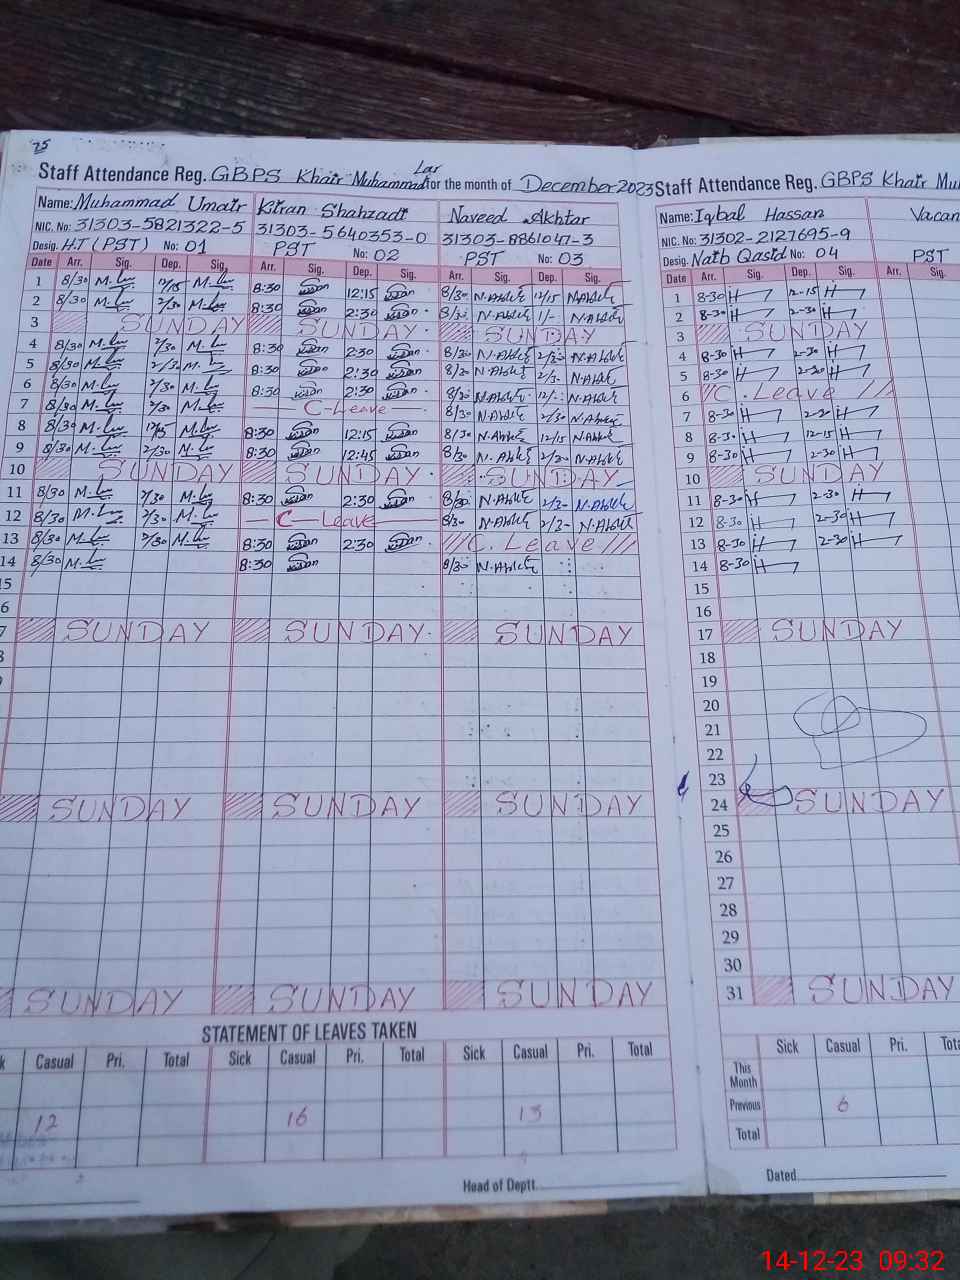 25
Staff Attendance Reg. GBPS Khair Muhammad Lar for the month of December 2023
Name: Muhammad Umair Kiran Shahzadi Naveed Akhtar
NIC. No: 31303-5821322-5 31303-5640353-0 31303-8861047-3
Desig. H.T (PST) No: 01 PST No: 02 PST No: 03
Date Arr. Sig. Dep. Sig. Arr. Sig. Dep. Sig. Arr. Sig. Dep. Sig.
1 8/30 12/15 8:30 12:15 8/30 12/15
2 8/30 2/30 8:30 2:30 8/30
3 SUNDAY SUNDAY SUNDAY
4 8/30 2/30 8:30 2:30 8/30 2/30
5 8/30 2/30 8:30 2:30 8/30 2/30
6 8/30 2/30 8:30 2:30 8/30
7 8/30 2/30 C-Leave 8/30 2/30
8 8/30 12/15 8:30 12:15 8/30 12/15
9 8/30 2/30 8:30 12:45 8/30 2/30
10 SUNDAY SUNDAY SUNDAY
11 8/30 2/30 8:30 2:30 8/30 2/30
12 8/30 2/30 C-Leave 8/30 2/30
13 8/30 2/30 8:30 2:30 C. Leave
14 8/30 8:30 8/30
15
6
7 SUNDAY SUNDAY SUNDAY
8
SUNDAY SUNDAY SUNDAY
SUNDAY SUNDAY SUNDAY
STATEMENT OF LEAVES TAKEN
Casual Pri. Total Sick Casual Pri. Total Sick Casual Pri. Total
12 16 13
Head of Deptt.
Staff Attendance Reg. GBPS Khair Mu
Name: Iqbal Hassan Vacan
NIC. No: 31302-2127695-9
Desig. Naib Qasid No: 04 PST
Date Arr. Sig. Dep. Sig. Arr. Sig.
1 8-30 H 12-15 H
2 8-30 H 2-30 H
3 SUNDAY
4 8-30 H 2-30 H
5 8-30 H 2-30 H
6 C. Leave
7 8-30 H 2-30 H
8 8-30 H 12-15 H
9 8-30 H 2-30 H
10 SUNDAY
11 8-30 H 2-30 H
12 8-30 H 2-30 H
13 8-30 H 2-30 H
14 8-30 H
15
16
17 SUNDAY
18
19
20
21
22
23
24 SUNDAY
25
26
27
28
29
30
31 SUNDAY
Sick Casual Pri. Tota
This Month
Previous 6
Total
Dated
14-12-23 09:32